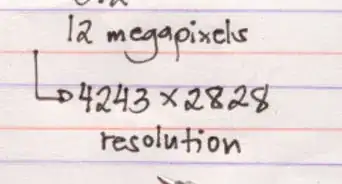 12 megapixels
4243 × 2828
resolution